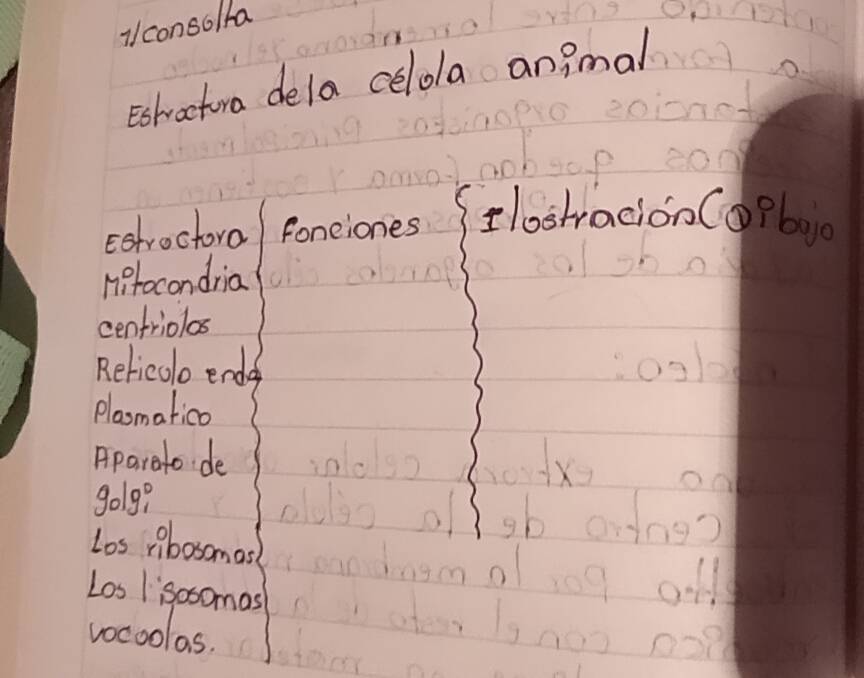 1/consolta
Estroctora dela célola animal
Estroctora fonciones Ilostración(Dibojo
Mitocondria
centriolos
Reticolo endo
Plasmatico
Aparato de
golgi
Los ribosomas
Los lisosomas
vocoolas.